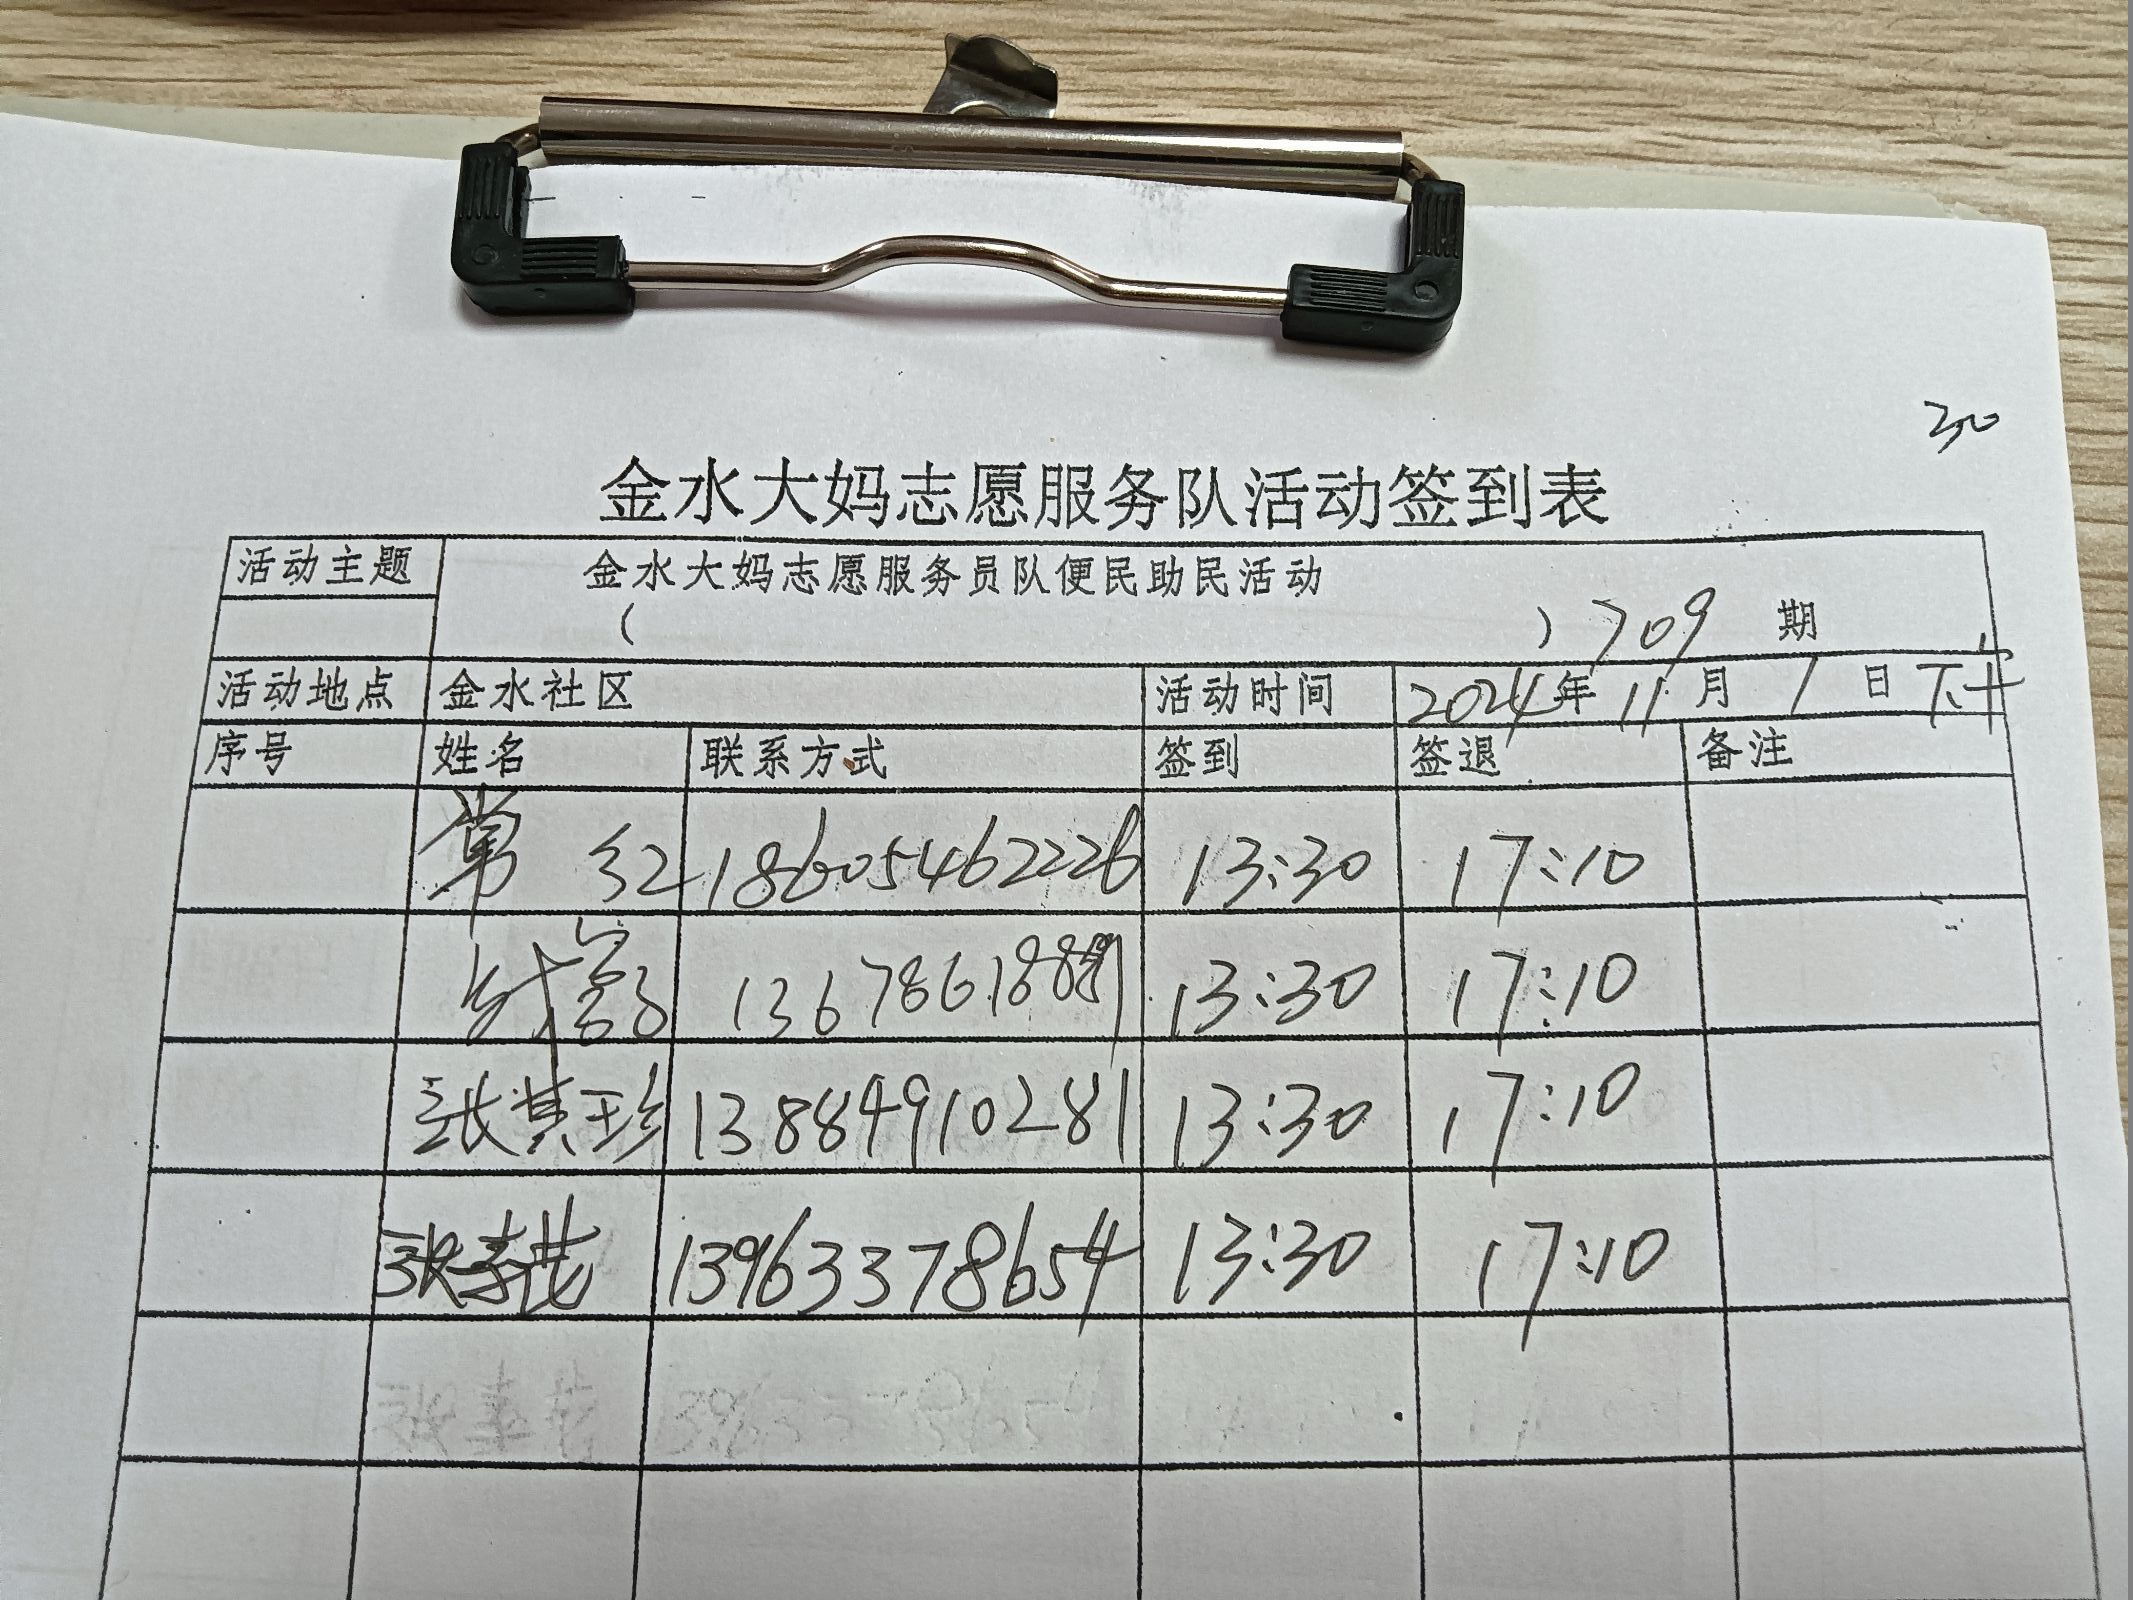 30
金水大妈志愿服务队活动签到表
活动主题 金水大妈志愿服务员队便民助民活动
( ) 709 期
活动地点 金水社区 活动时间 2024年 11 月 1 日 下午
序号 姓名 联系方式 签到 签退 备注
常红 18605462226 13:30 17:10
13:30 17:10
张其珍 13884910281 13:30 17:10
张 13963378654 13:30 17:10